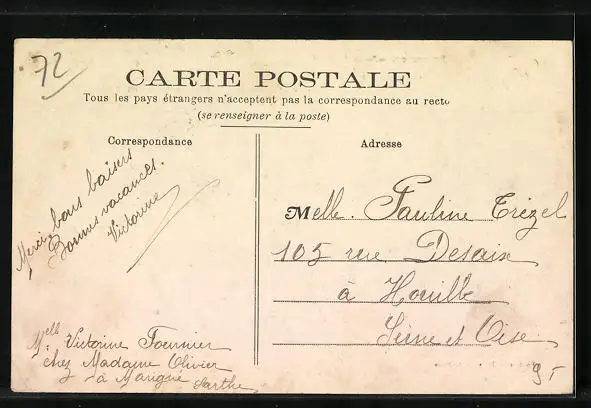 72
CARTE POSTALE
Tous les pays étrangers n'acceptent pas la correspondance au recto
(se renseigner à la poste)
Correspondance
Adresse
Merci, bons baisers
Bonnes vacances.
Victorine
Melle. Pauline Trézel
105 rue Desaix
à Houille
Seine et Oise
Melle Victorine Fournier
chez Madame Olivier
à Marigné Sarthe
9,-